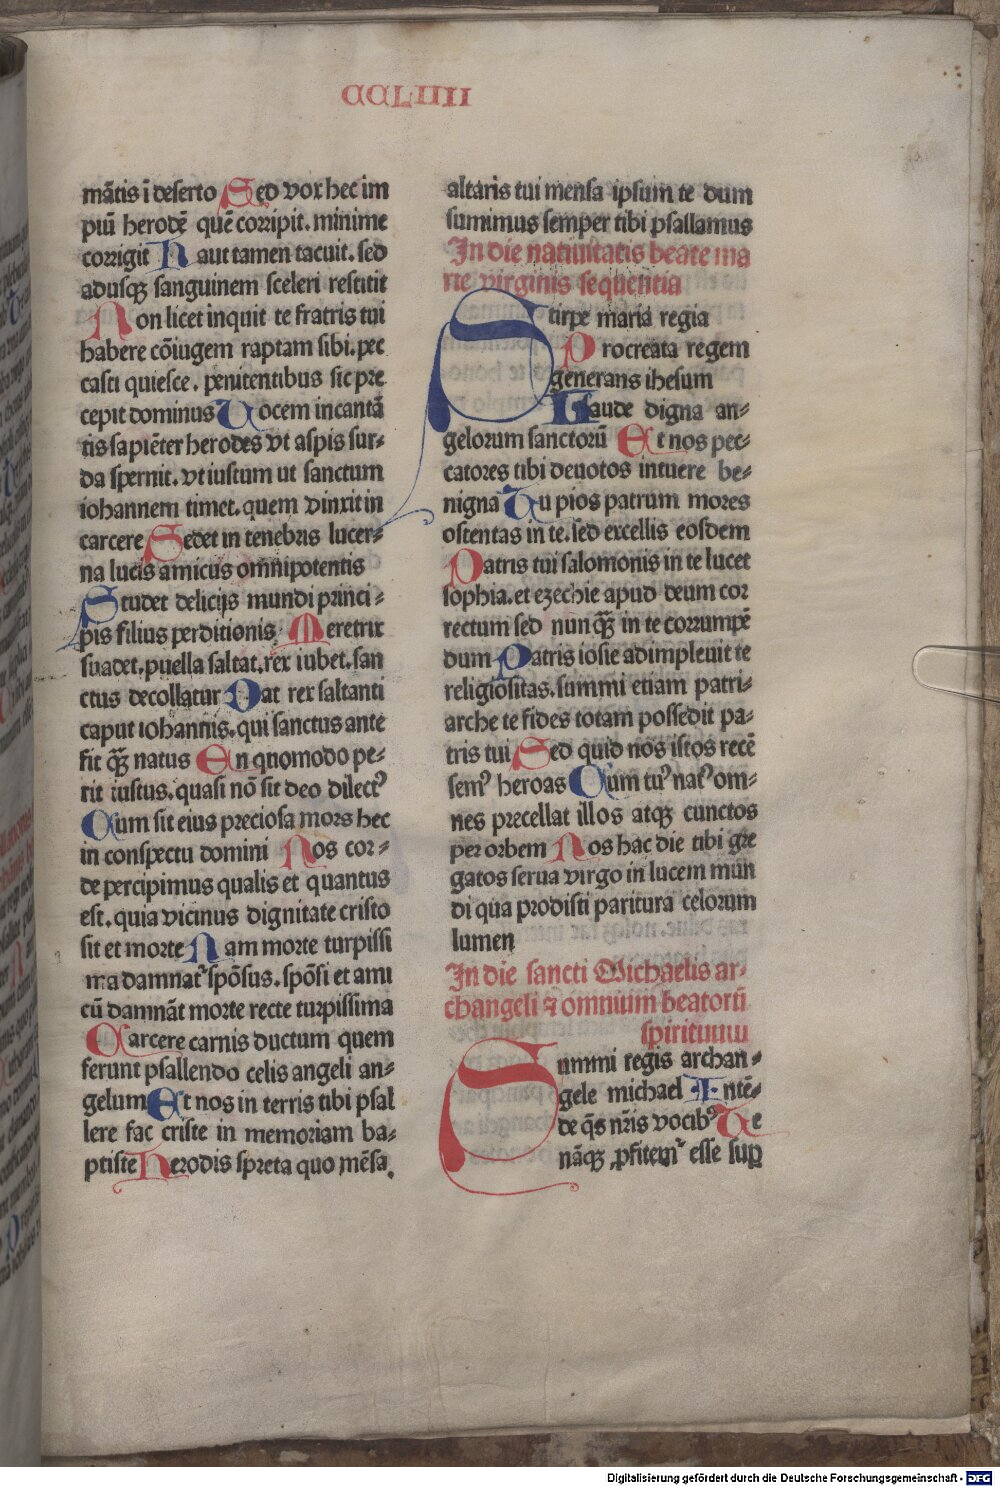 CCLIIII
mātis ī deserto Sed vox hec im
piū herodē quē corripit. minime
corrigit Haut tamen tacuit. sed
adusqꝫ sanguinem sceleri restitit
Non licet inquit te fratris tui
habere cōiugem raptam sibi. pec
casti quiesce. penitentibus sic pre
cepit dominus Vocem incantā
tis sapiēter herodes vt aspis sur⸗
da spernit. vt iustum ut sanctum
iohannem timet. quem vinxit in
carcere Sedet in tenebris lucer⸗
na lucis amicus omnipotentis
Studet delicijs mundi princi⸗
pis filius perditionis Meretrix
suadet. puella saltat. rex iubet. san
ctus decollatur Dat rex saltanti
caput iohannis. qui sanctus ante
fit qꝫ natus En quomodo pe⸗
rit iustus. quasi nō sit deo dilectꝰ
Cum sit eius preciosa mors hec
in conspectu domini Nos cor⸗
de percipimus qualis et quantus
est. quia vicinus dignitate cristo
sit et morte Nam morte turpissi
ma damnatᷣ spōsus. spōsi et ami
cū damnāt morte recte turpissima
Carcere carnis ductum quem
ferunt psallendo celis angeli an⸗
gelum Et nos in terris tibi psal
lere fac criste in memoriam ba⸗
ptiste Herodis spreta quo mēsa.
altaris tui mensa ipsum te dum
sumimus semper tibi psallamus
In die natiuitatis beate ma
rie virginis sequentia
Stirpe maria regia
Procreata regem
generans ihesum
Laude digna an⸗
gelorum sanctorū Et nos pec⸗
catores tibi deuotos intuere be⸗
nigna Tu pios patrum mores
ostentas in te. sed excellis eosdem
Patris tui salomonis in te lucet
sophia. et ezechie apud deum cor
rectum sed nunqꝫ in te corrumpē
dum Patris iosie adimpleuit te
religiositas. summi etiam patri⸗
arche te fides totam possedit pa⸗
tris tui Sed quid nos istos recē
semꝰ heroas Cum tuꝰ natꝰ om⸗
nes precellat illos atqꝫ cunctos
per orbem Nos hac die tibi gre
gatos serua virgo in lucem mūn
di qua prodisti paritura celorum
lumen
In die sancti Michaelis ar⸗
changeli ⁊ omnium beatorū
spirituum
Summi regis archan⸗
gele michael Intē⸗
de qs̄ nr̄is vocibꝰ Te
nāqꝫ ꝓfitemᷣ esse suꝑ
Digitalisierung gefördert durch die Deutsche Forschungsgemeinschaft - DFG